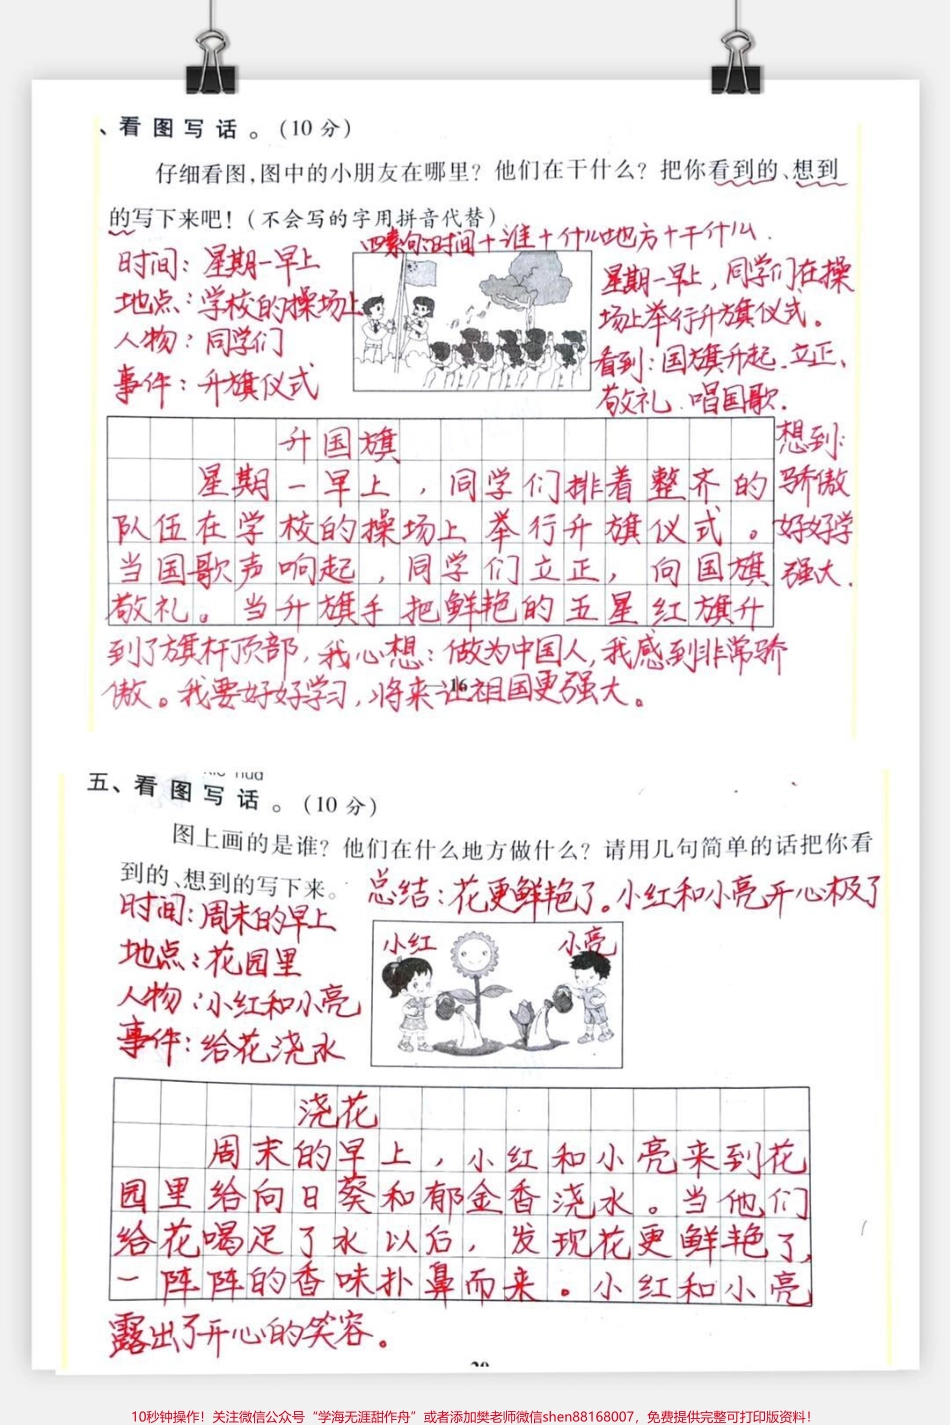 、看图写话。(10分)
仔细看图,图中的小朋友在哪里?他们在干什么?把你看到的、想到
的写下来吧!(不会写的字用拼音代替)
四素句:时间+谁+什么地方+干什么.
时间:星期一早上
地点:学校的操场上
人物:同学们
事件:升旗仪式
星期一早上,同学们在操
场上举行升旗仪式。
看到:国旗升起、立正、
敬礼、唱国歌.
想到:
骄傲
好好学
强大.
升国旗
星期一早上,同学们排着整齐的
队伍在学校的操场上举行升旗仪式。
当国歌声响起,同学们立正,向国旗
敬礼。当升旗手把鲜艳的五星红旗升
到了旗杆顶部,我心想:做为中国人,我感到非常骄
傲。我要好好学习,将来让祖国更强大。
16
五、看图写话。(10分)
图上画的是谁?他们在什么地方做什么?请用几句简单的话把你看
到的、想到的写下来。
总结:花更鲜艳了。小红和小亮开心极了
时间:周末的早上
地点:花园里
人物:小红和小亮
事件:给花浇水
小红
小亮
浇花
周末的早上,小红和小亮来到花
园里给向日葵和郁金香浇水。当他们
给花喝足了水以后,发现花更鲜艳了,
一阵阵的香味扑鼻而来。小红和小亮
露出了开心的笑容。
10秒钟操作!关注微信公众号“学海无涯甜作舟”或者添加樊老师微信shen88168007,免费提供完整可打印版资料!